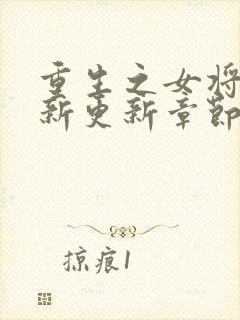 重生之女将
新更新章节
掠痕1